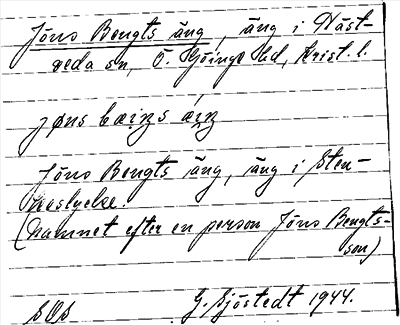 Jöns Bengts äng, äng i Näst-
veda sn, Ö. Göinge hd, Krist. l.
jøns bæiŋs ǽiŋ
Jöns Bengts äng, äng i Sten-
haslycke.
(namnet efter en person Jöns Bengts-
son)
G. Sjöstedt 1944.